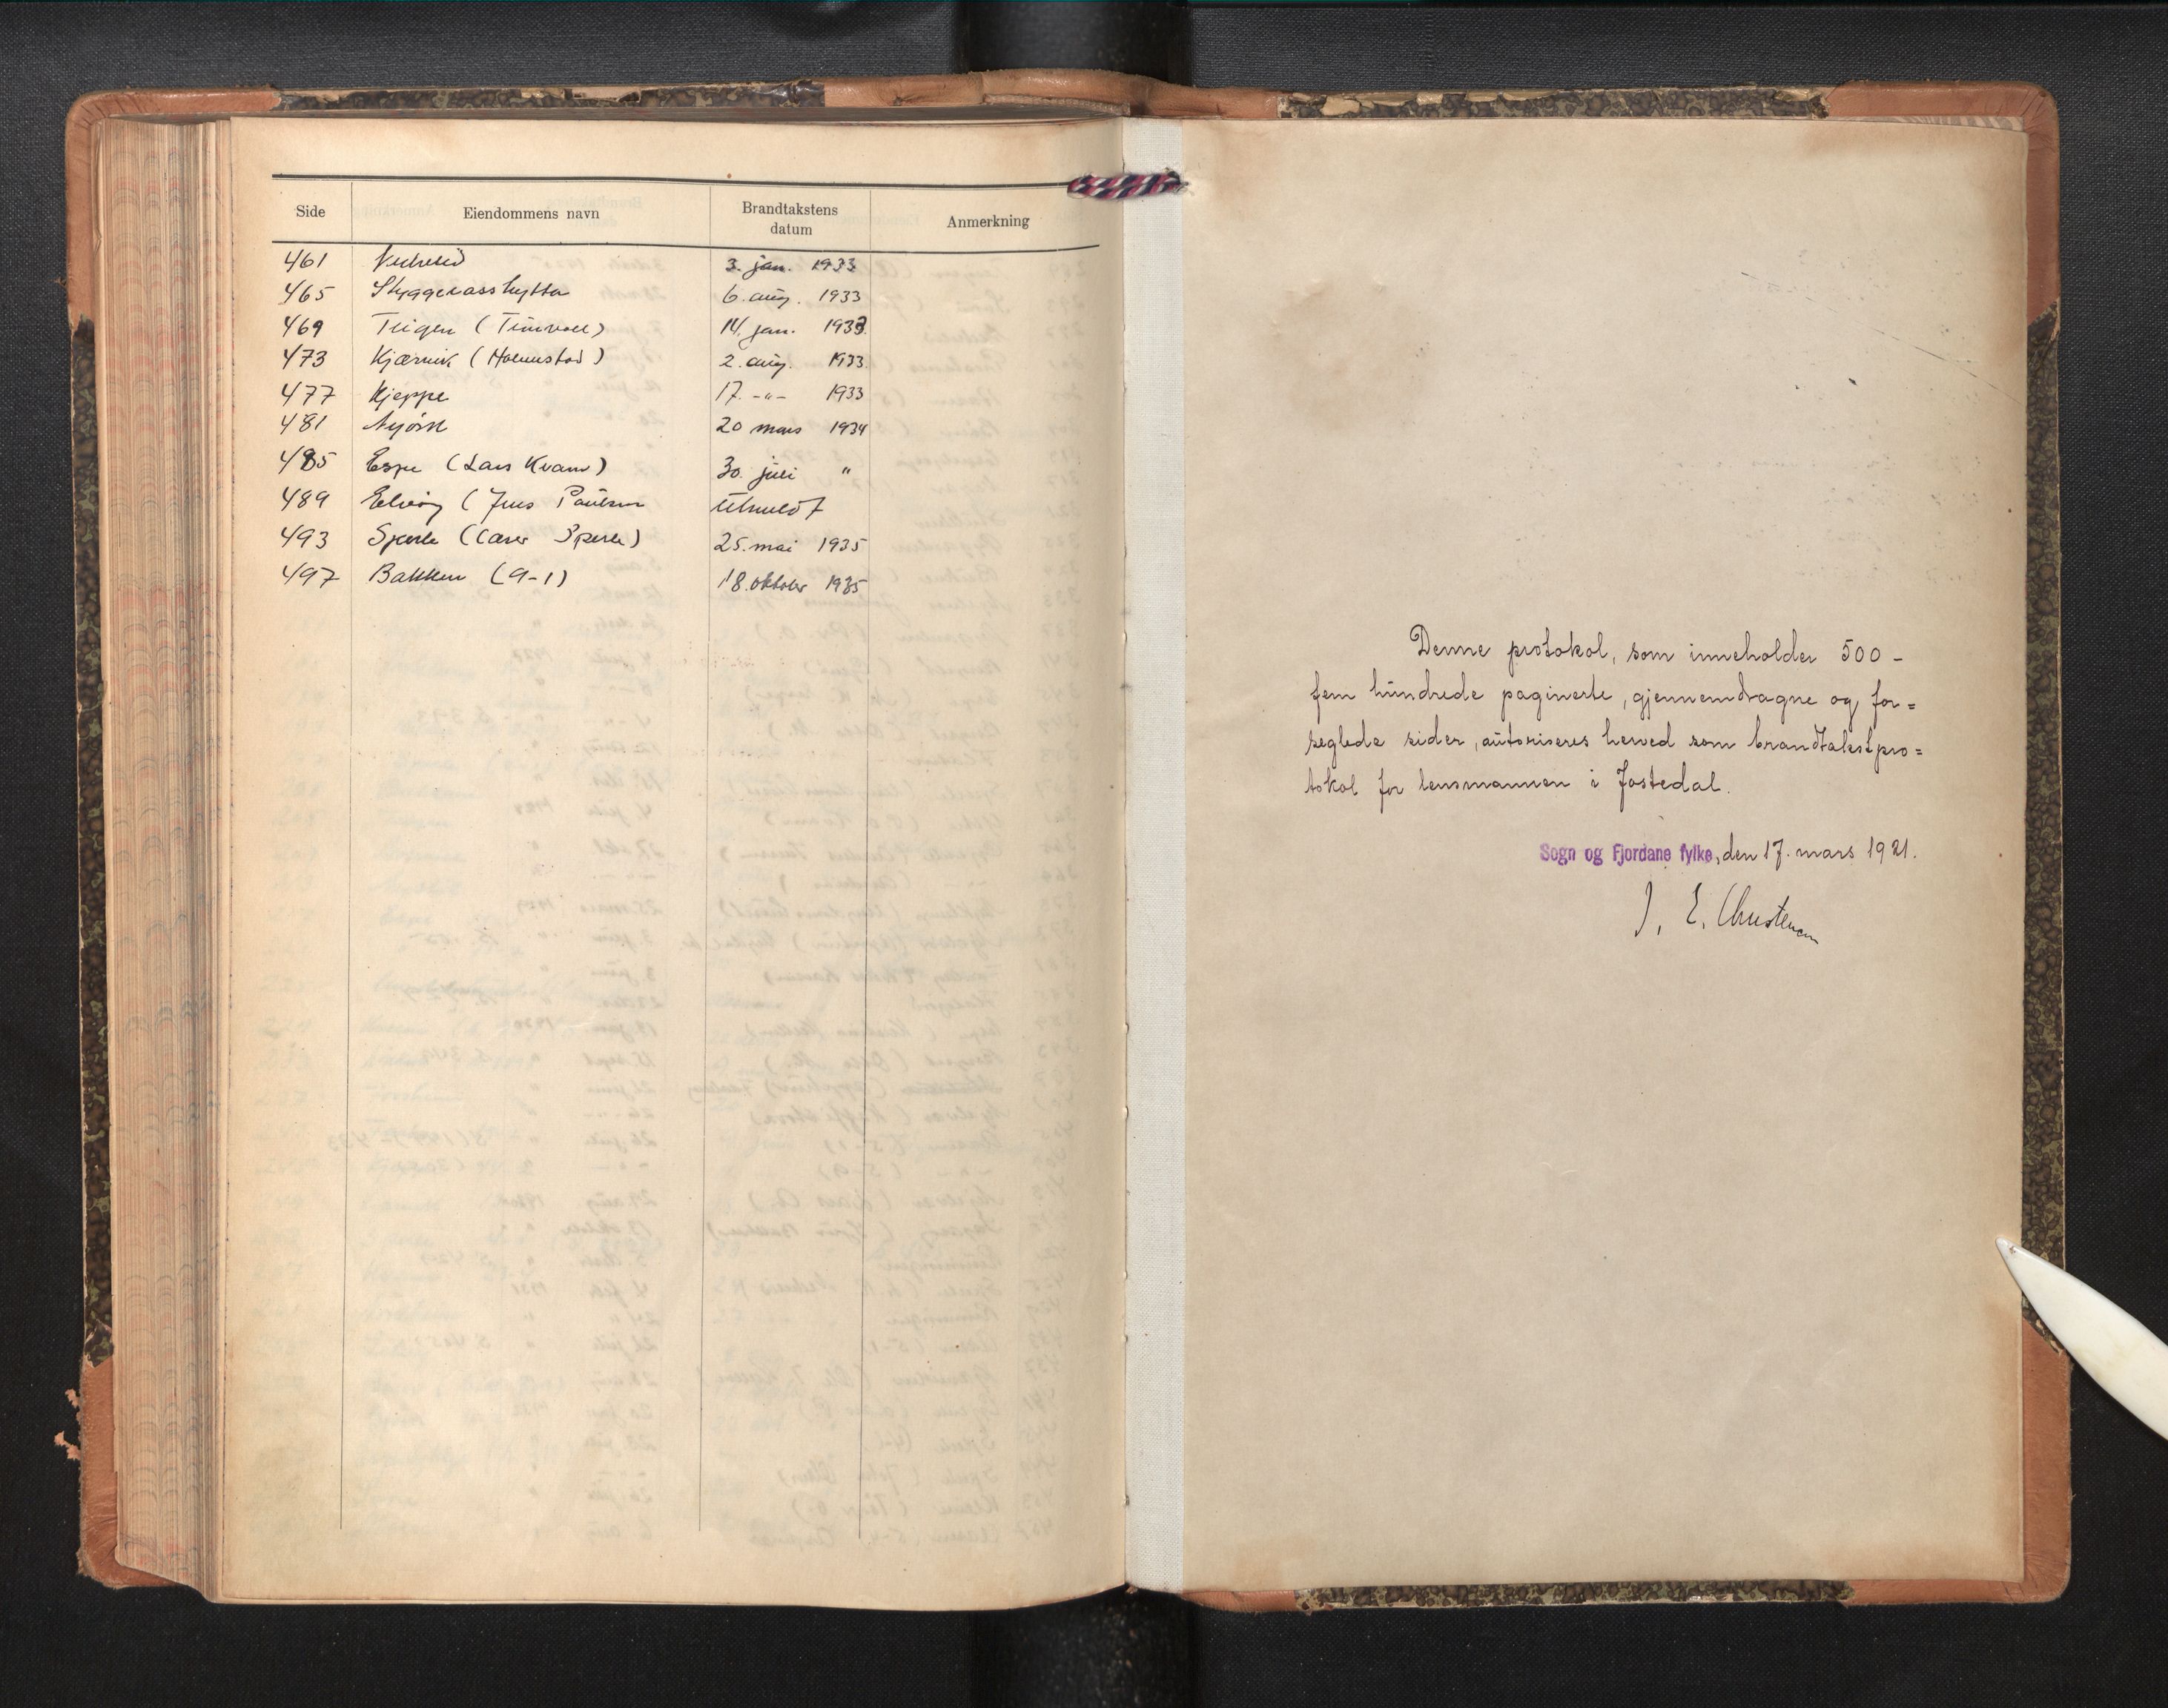 Side Eiendommens navn Brandtakstens datum Anmerkning
461 3. jan. 1933
465 Styggevasshytta 6. aug. 1933
469 Teigen ( 14. jan. 1933
473 Kjærvik (Holmstad) 2. aug. 1933
477 Kjeppe 17. -"- 1933
481 20 mars 1934
485 Espe (Lars Kvam) 30. juli "
489 Elvøy (Jens Paulsen
493 Sperle ( Sperle) 25. mai 1935
497 Bakken (9-1) 18. oktober 1935
Denne protokol, som inneholder 500 -
fem hundrede paginerte, gjennemdragne og for=
seglede sider, autoriseres herved som brandtakstpro=
tokol for lensmannen i Jostedal.
Sogn og Fjordane fylke, den 17. mars 1921.
J. E. Christensen